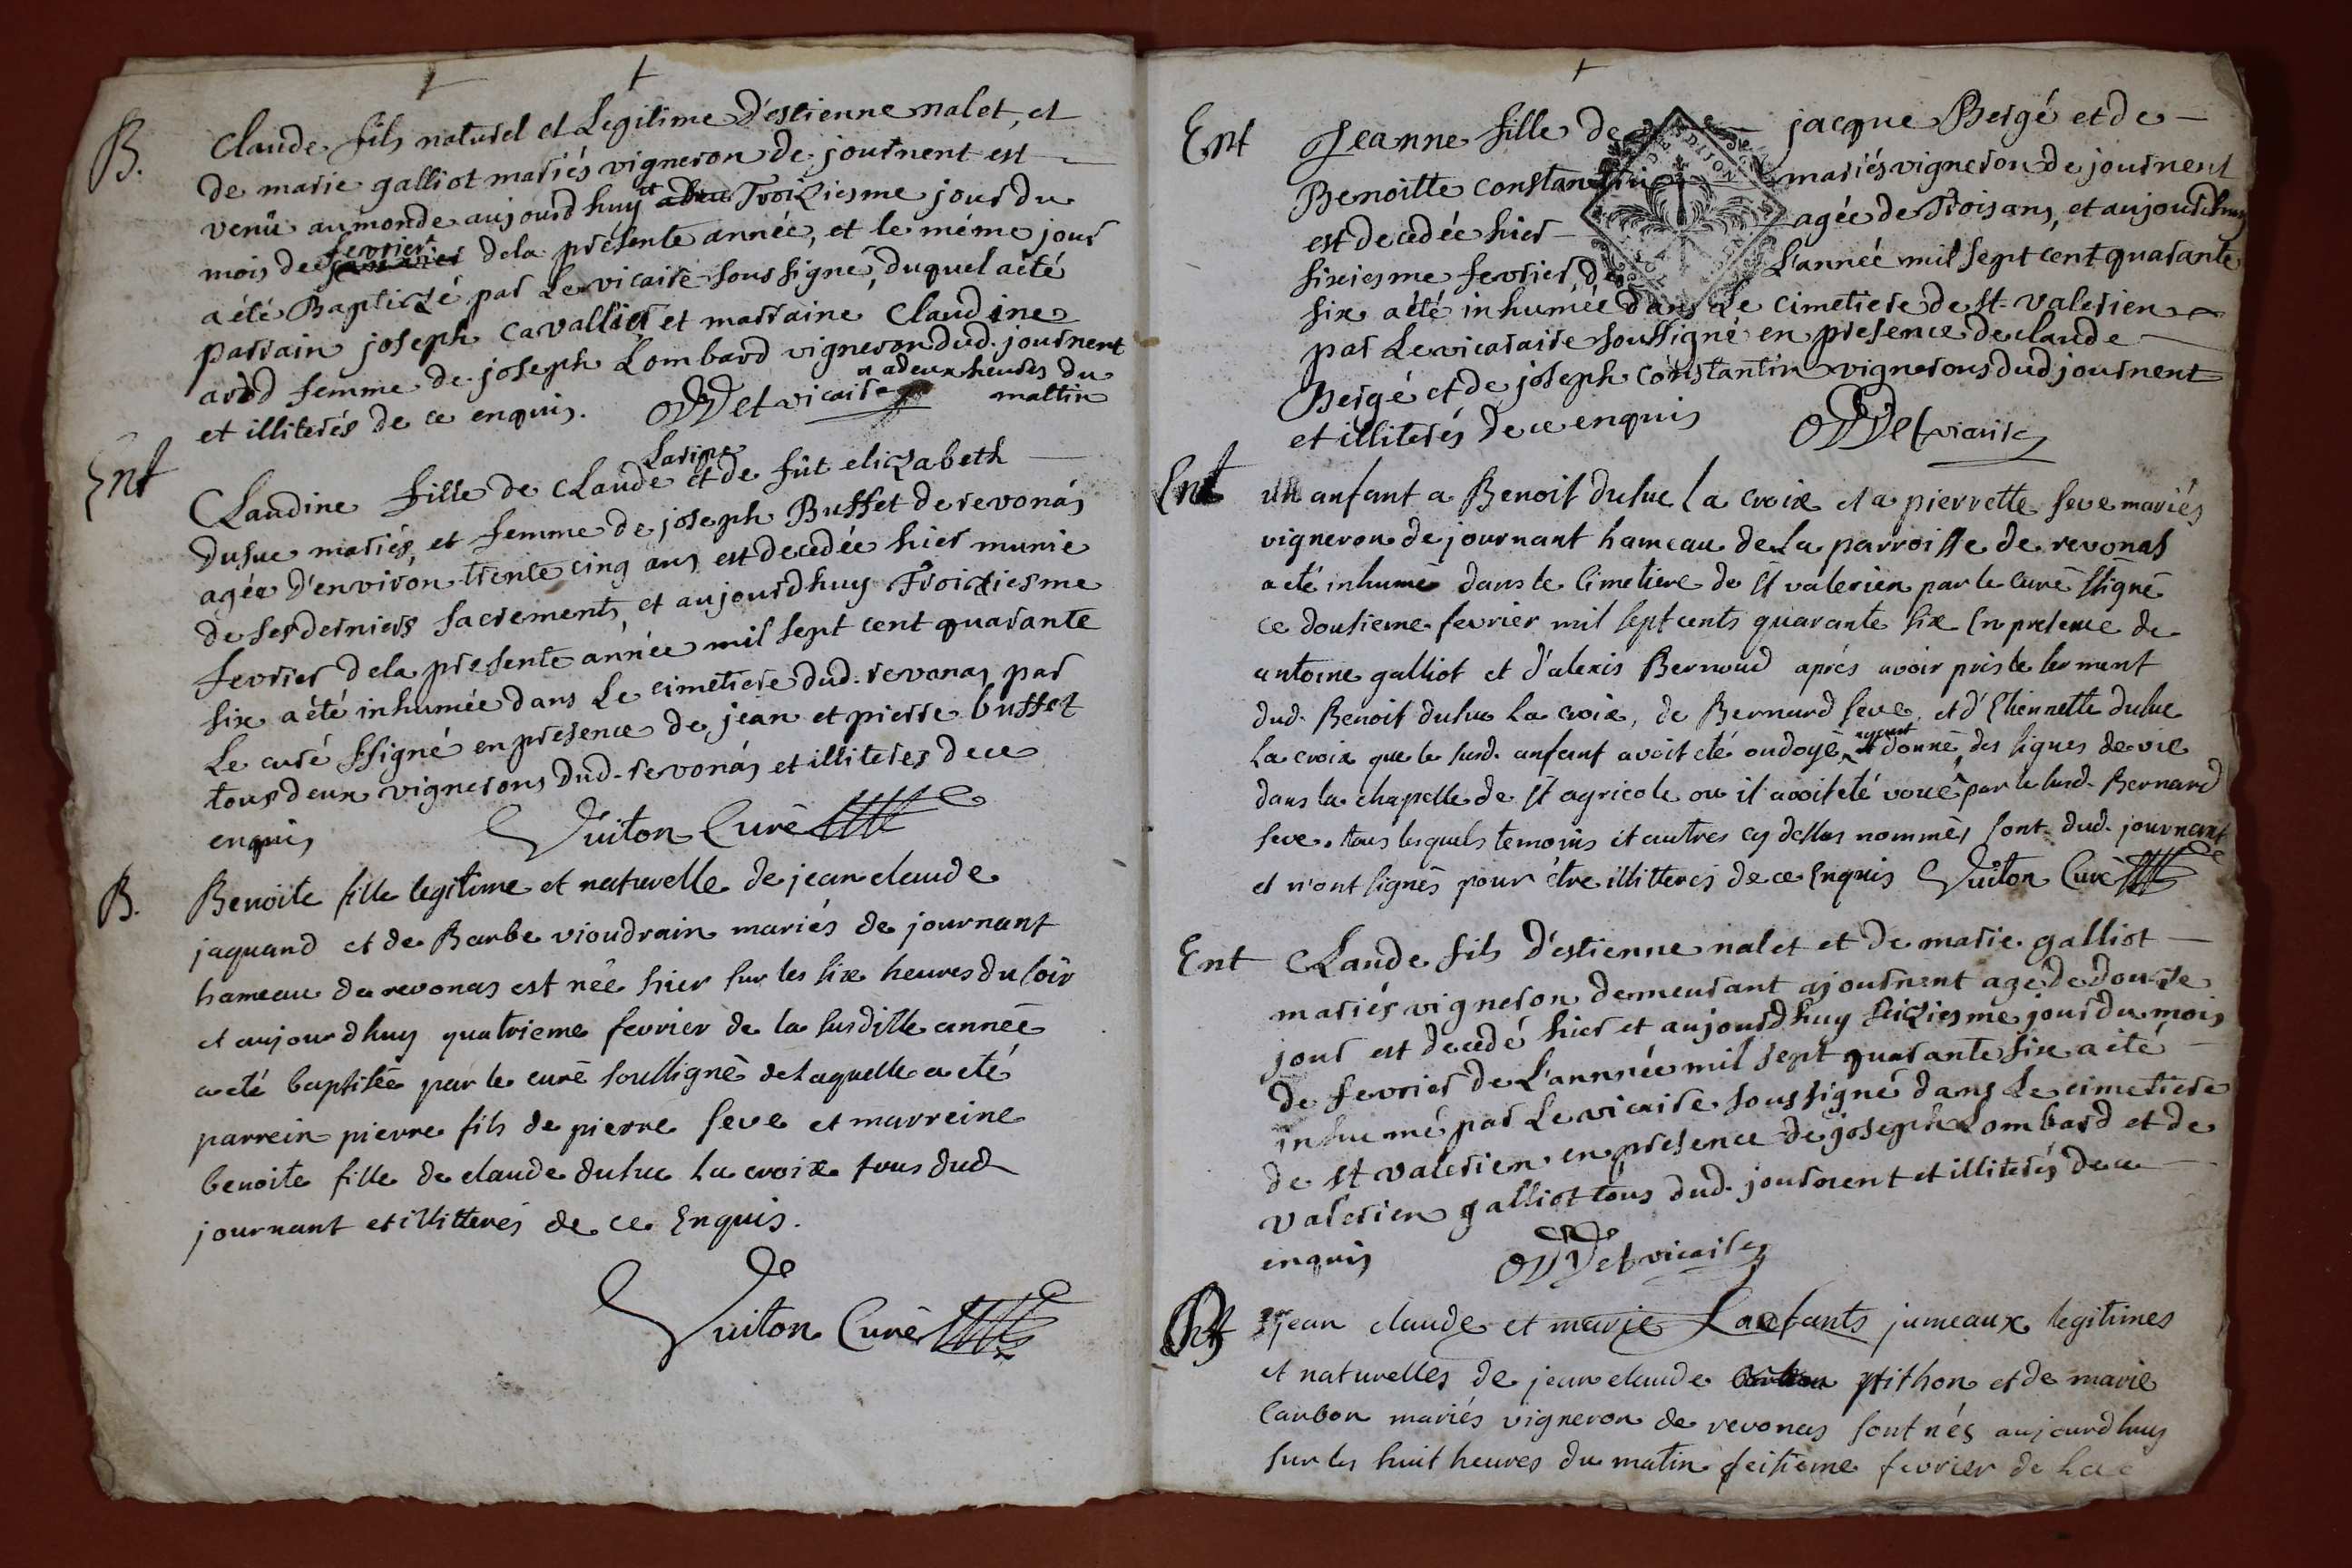 B.
Claude fils naturel et Legitime D'estienne nalet, et
de marie galliot mariés vigneron de journent est
venü au monde aujourd'huy et Troiziesme jour du
mois de fevrier dela presente année, et le méme jour
a été Baptizé par Le vicaire sous signé, duquel a été
parrain joseph cavallier et marraine Claudine
femme de joseph Lombard vigneron dud. journent
et illiterés de ce enquis. vicaire a deux heures du
mattin
Ent
Larime
Claudine fille de Claude et de fût elizabeth
Dusuc mariés, et femme de joseph Buffet de revonás
agée d'environ trente cinq ans est decedée hier munie
de ses derniers sacrements, et aujourdhuy Troiziesme
fevrier dela presente année mil sept cent quarante
six a été inhumée dans Le cimetiere dud. revonas par
Le curé ssigné en presence de jean et pierre buffet
tous deux vignerons dud. revonás et illiteres de ce
enquis Vuiton Curé
B.
Benoite fille legitime et naturelle de jean claude
jaquand et de Barbe vioudrain mariés de journant
hameau de revonas est née hier sur les six heures du soir
et aujourdhuy quatrieme fevrier de la susditte année
a eté baptisée par le curé soussigné de laquelle a eté
parrein pierre fils de pierre seve et marreine
benoite fille de claude dusuc la croix tous dud
journant et illitterés de ce Enquis.
Vuiton Curé
Ent
Jeanne fille de jacque Bergé et de
Benoitte constantin mariés vigneron de journent
est decedée hier agée de Trois ans, et aujourdhuy
sixiesme fevrier de L'année mil sept cent quarante
six a été inhumée dans Le cimetiere de st valerien
par Le vicaraire soussigné en presence de claude
Bergé et de joseph constantin vignerons dud journent
et illiterés de ce enquis vicaire
Ent
un anfant a Benoit dusuc la croix et a pierrette seve mariés
vigneron de journant hameau de la parroisse de revonas
a eté inhumé dans le cimetiere de st valerien par le curé ssigné
ce dousieme fevrier mil sept cents quarante six En presence de
antoine galliot et d'alexis Bernoud aprés avoir pris le serment
dud. Benoit dusuc la croix, de Bernard seve, et d'Etiennette dusuc
la croix que le susd. anfant avoit eté ondoyé ayant donné des signes de vie
dans la chapelle de st agricole ou il avoit eté voué par le susd. Bernard
seve. tous lesquels temoins et autres cy dessus nommés sont dud. journant
et n'ont signés pour étre illitterés de ce Enquis Vuiton Curé
Ent
Claude fils d'estienne nalet et de marie galliot
mariés vigneron demeurant a journent agé de douze
jour est decedé hier et aujourdhuy seiziesme jour du mois
de fevrier de L'annnée mil sept quarante six a été
inhumé par Le vicaire soussigné dans Le cimetiere
de st valerien en presence de joseph Lombard et de
valerien galliot tous dud. journent et illiterés de ce
enquis vicaire
jean claude et marie anfants jumeaux legitimes
et naturelles de jean claude pithon et de marie
Carbon mariés vigneron de revonas sont nés aujourdhuy
sur les huit heures du matin seisieme fevrier de la